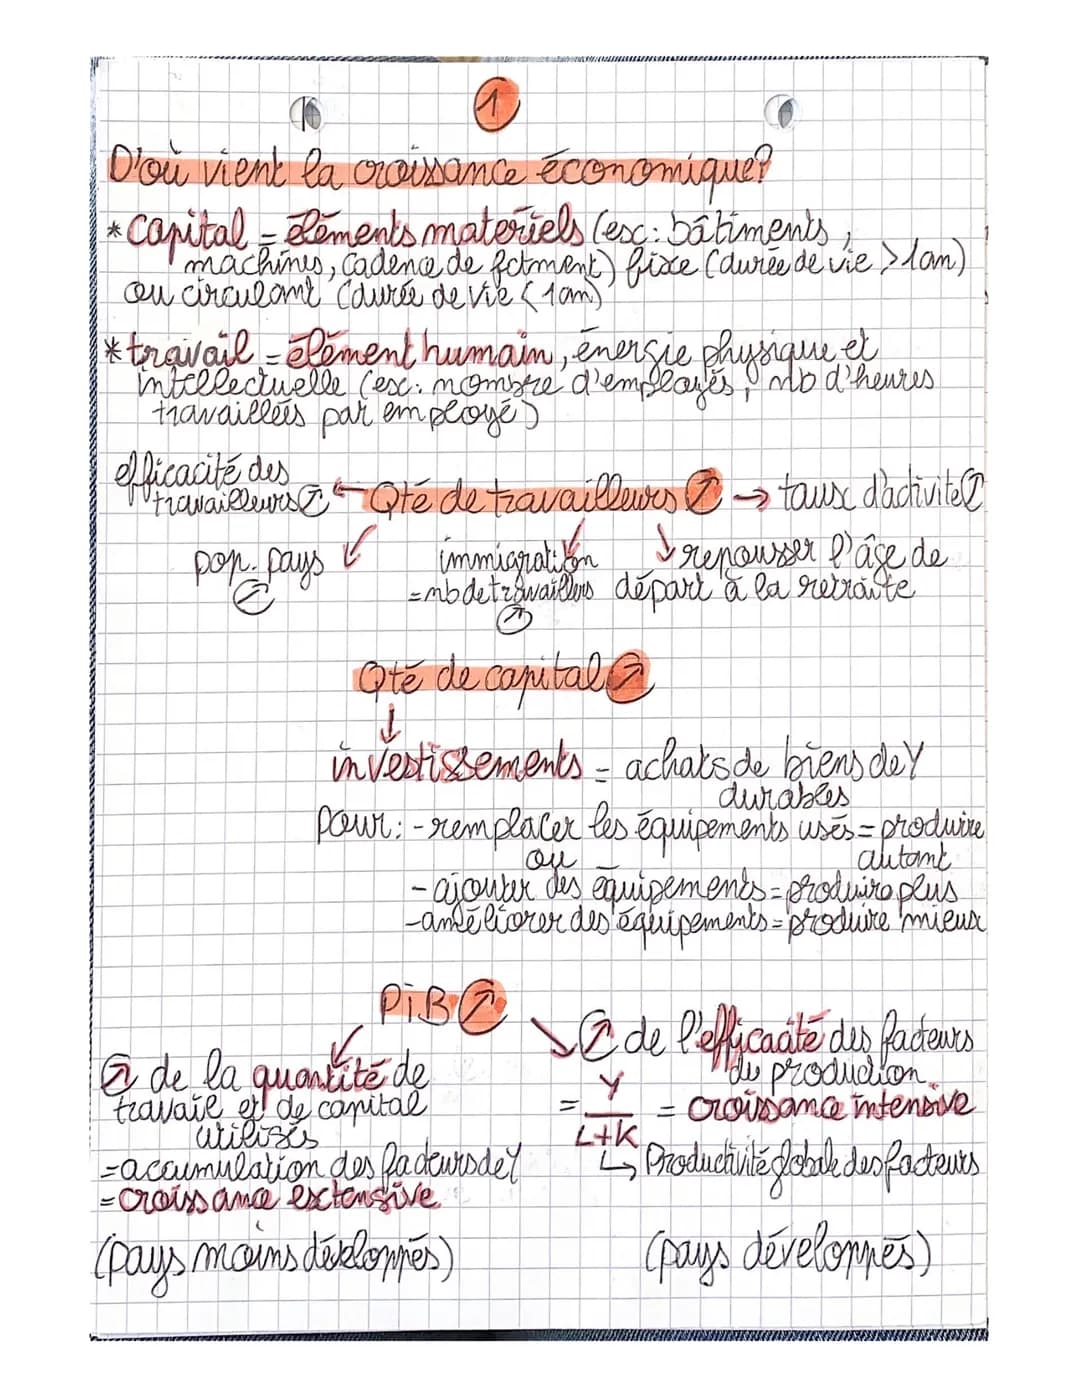 1
D'où vient la croissance économique?
* Capital = éléments matériels (ex: bâtiments,
machines, cadence de fctment) fixe (durée de vie > 1an)
ou circulant (durée de vie < 1an)
* travail = élément humain, énergie physique et
intellectuelle (ex: nombre d'employés, nb d'heures
travaillées par employé)
efficacité des
travailleurs ↗ ← Qté de travailleurs ↗ → taux d'activité ↗
pop. pays ↗
immigration
= nb de travaillers ↗
repousser l'âge de
départ à la retraite
Qté de capital ↗
↓
investissements = achats de biens de Y
durables
pour: - remplacer les équipements usés = produire
autant
ou
- ajouter des équipements = produire plus
- améliorer des équipements = produire mieux
PiB ↗
↗ de la quantité de
travail et de capital
utilisés
= accumulation des facteurs de Y
= croissance extensive
(pays moins développés)
↗ de l'efficacité des facteurs
du production
= Y / L+K = croissance intensive
↳ Productivité globale des facteurs
(pays développés)